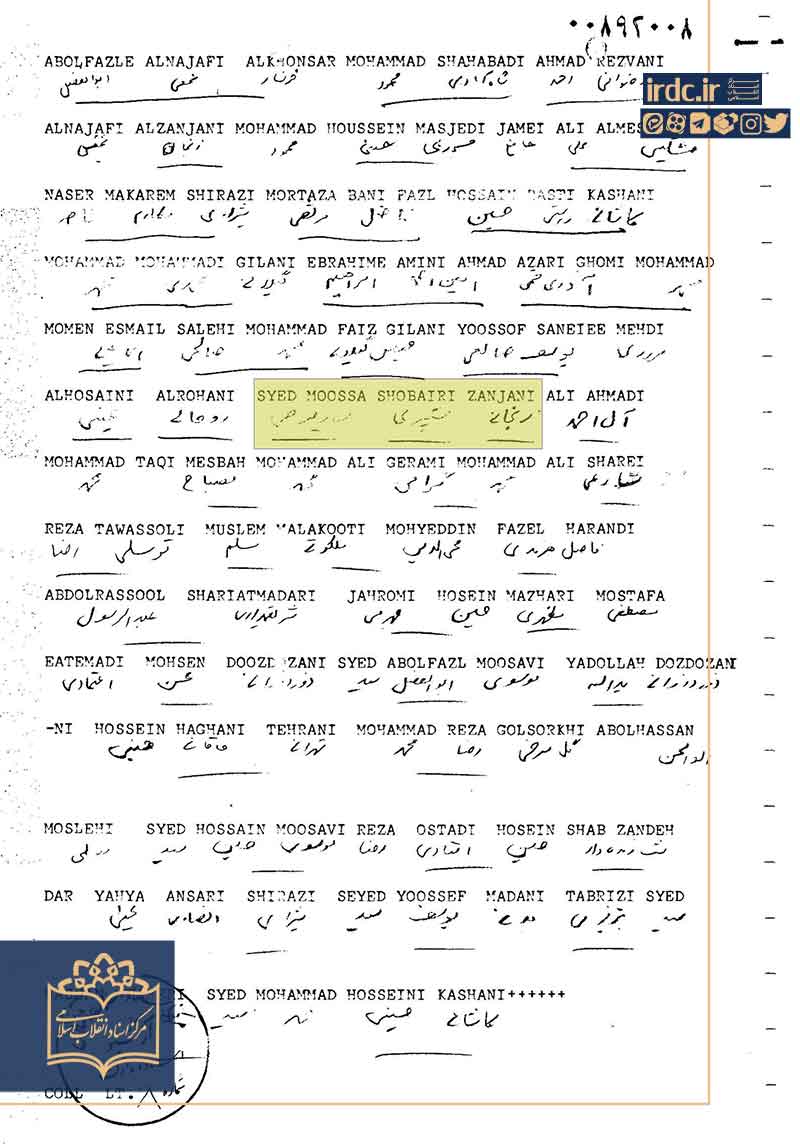 ۰۰۸۹۲۰۰۸
ABOLFAZLE ALNAJAFI ALKHONSAR MOHAMMAD SHAHABADI AHMAD REZVANI
رضوانی احمد شاه آبادی محمد خونسار نجفی ابوالفضل
irdc.ir
ALNAJAFI ALZANJANI MOHAMMAD HOUSSEIN MASJEDI JAMEI ALI
علی جامع مسجدی حسین محمد زنجانی نجفی
NASER MAKAREM SHIRAZI MORTAZA BANI FAZL HOSSAIN RASTI KASHANI
کاشانی راستی حسین فاضل مرتضی شیرازی مکارم ناصر
MOHAMMAD MOHAMMADI GILANI EBRAHIME AMINI AHMAD AZARI GHOMI MOHAMMAD
محمد آذری قمی احمد امینی ابراهیم گیلانی محمدی محمد
MOMEN ESMAIL SALEHI MOHAMMAD FAIZ GILANI YOOSSOF SANEIEE MEHDI
یوسف گیلانی محمد صالحی
ALHOSAINI ALROHANI SYED MOOSSA SHOBAIRI ZANJANI ALI AHMADI
آل احمد زنجانی شبیری روحانی حسینی
MOHAMMAD TAQI MESBAH MOHAMMAD ALI GERAMI MOHAMMAD ALI SHAREI
شارعی محمد گرامی محمد مصباح محمد
REZA TAWASSOLI MUSLEM MALAKOOTI MOHYEDDIN FAZEL HARANDI
فاضل هرندی محی الدین ملکوتی مسلم توسلی رضا
ABDOLRASSOOL SHARIATMADARI JAHROMI HOSEIN MAZHARI MOSTAFA
مصطفی مظهری حسین جهرمی شریعتمداری عبدالرسول
EATEMADI MOHSEN DOOZDOZANI SYED ABOLFAZL MOOSAVI YADOLLAH DOZDOZANI
دوزدوزانی یدالله موسوی ابوالفضل سید دوزدوزانی محسن اعتمادی
-NI HOSSEIN HAGHANI TEHRANI MOHAMMAD REZA GOLSORKHI ABOLHASSAN
ابوالحسن گل سرخی رضا محمد تهرانی حقانی حسین
MOSLEHI SYED HOSSAIN MOOSAVI REZA OSTADI HOSEIN SHAB ZANDEH
شب زنده دار حسین استادی رضا موسوی حسین سید مصلحی
DAR YAHYA ANSARI SHIRAZI SEYED YOOSSEF MADANI TABRIZI SYED
سید تبریزی مدنی یوسف سید شیرازی انصاری یحیی
SYED MOHAMMAD HOSSEINI KASHANI++++++
کاشانی حسینی محمد سید
مرکز اسناد انقلاب اسلامی
COLL LT. ۸ شماره